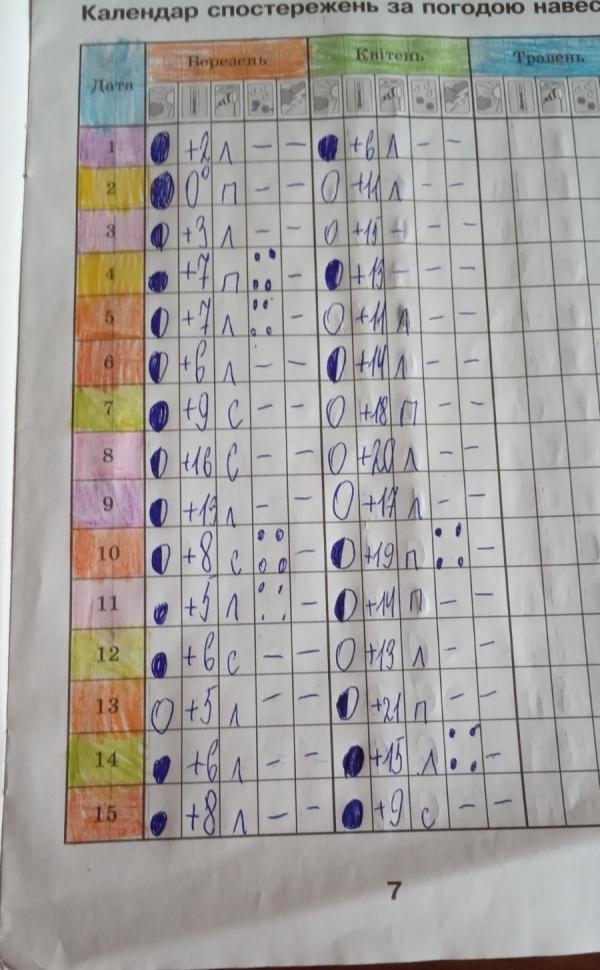 Календар спостережень за погодою навес
Дата Березень Квітень Травень
1 +2 л – – +6 л – –
2 0° п – – +11 л – –
3 +3 л – – +15 – – –
4 +7 п – +13 – – –
5 +7 л – +11 л – –
6 +6 л – – +14 л – –
7 +9 с – – +18 п – –
8 +16 с – – +20 л – –
9 +13 л – – +17 л – –
10 +8 с – +19 п –
11 +5 л – +14 п – –
12 +6 с – – +13 л – –
13 +5 л – – +21 п – –
14 +6 л – – +15 л –
15 +8 л – – +9 с – –
7